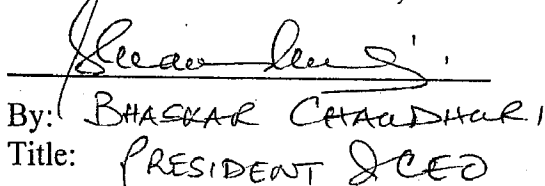 By: BHASKAR CHAUDHURI
Title: PRESIDENT & CEO